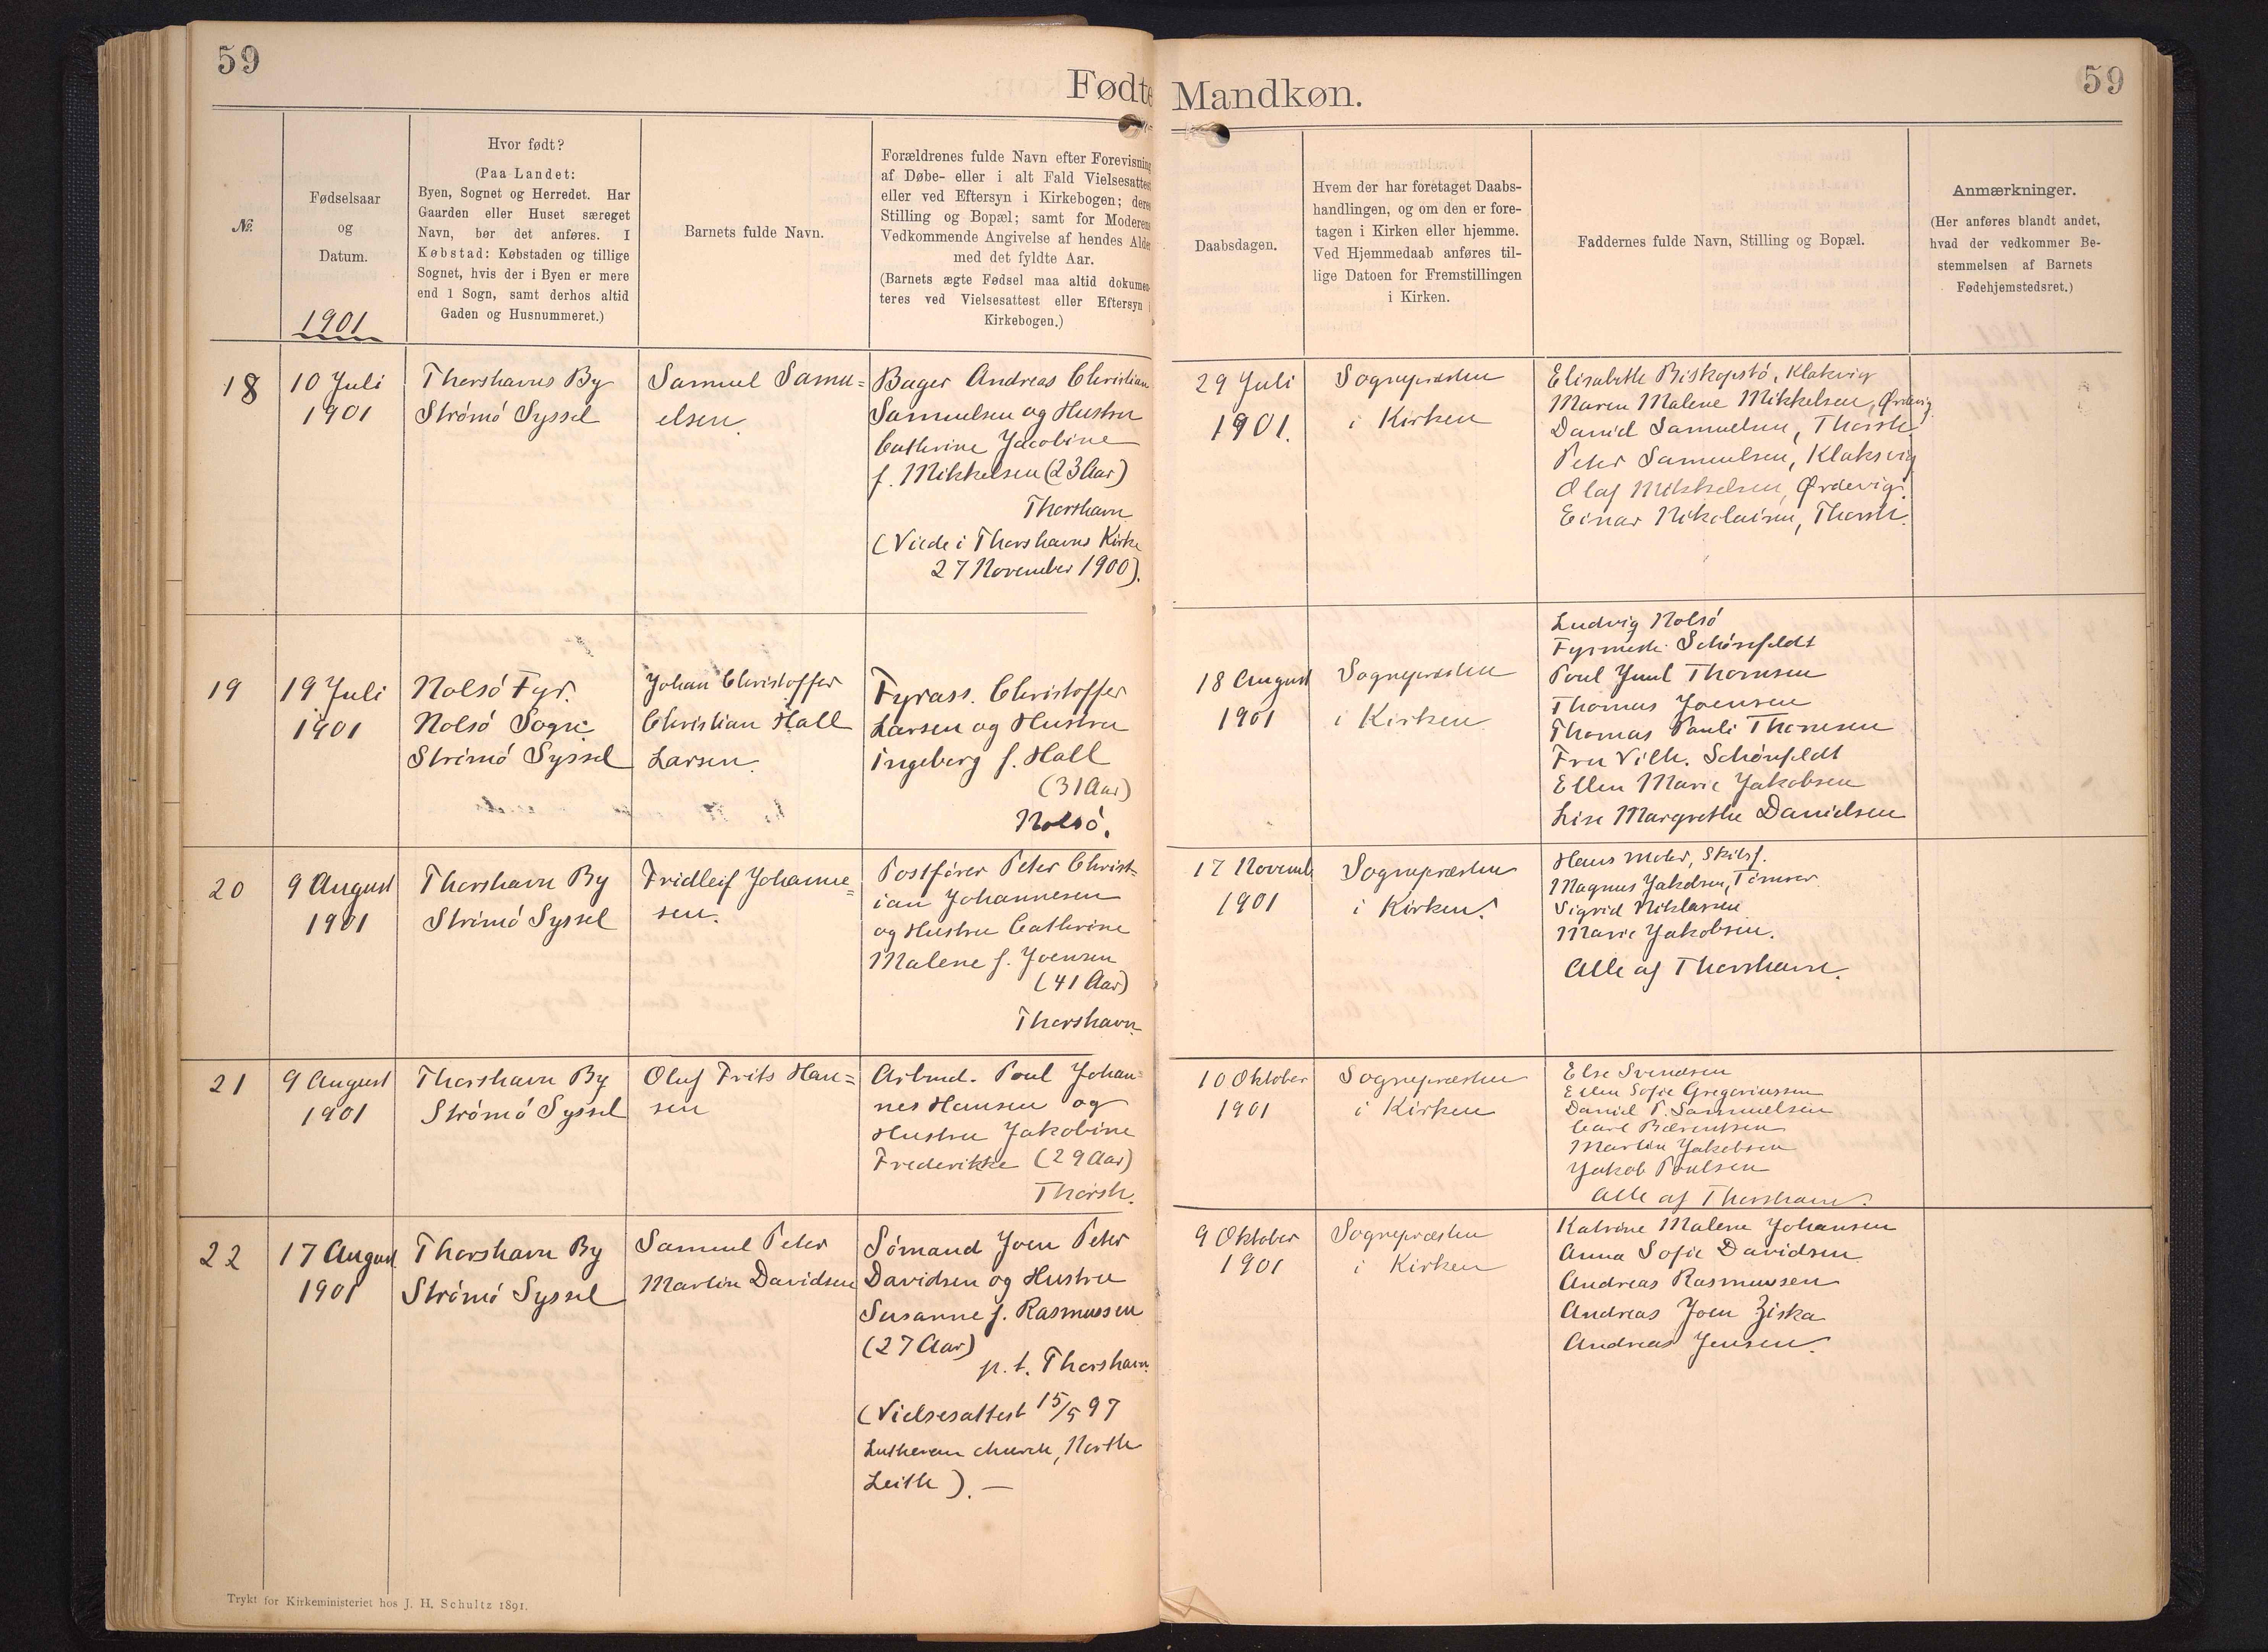 59
Fødte
Mandkøn.
59
№.
Fødselsaar
og
Datum.
1901
Hvor født?
(Paa Landet:
Byen, Sognet og Herredet. Har
Gaarden eller Huset særeget
Navn, bør det anføres. I
Købstad: Købstaden og tillige
Sognet, hvis der i Byen er mere
end 1 Sogn, samt derhos altid
Gaden og Husnummeret.)
Barnets fulde Navn.
Forældrenes fulde Navn efter Forevisning
af Døbe- eller i alt Fald Vielsesattest
eller ved Eftersyn i Kirkebogen; deres
Stilling og Bopæl; samt for Moderens
Vedkommende Angivelse af hendes Alder
med det fyldte Aar.
(Barnets ægte Fødsel maa altid dokumen-
teres ved Vielsesattest eller Eftersyn i
Kirkebogen.)
Daabsdagen.
Hvem der har foretaget Daabs-
handlingen, og om den er fore-
tagen i Kirken eller hjemme.
Ved Hjemmedaab anføres til-
lige Datoen for Fremstillingen
i Kirken.
Faddernes fulde Navn, Stilling og Bopæl.
Anmærkninger.
(Her anføres blandt andet,
hvad der vedkommer Be-
stemmelsen af Barnets
Fødehjemstedsret.)
18
10 Juli
1901
Thorshavns By
Strömö Syssel
Samuel Samu=
elsen.
Bager Andreas Christian
Samuelsen og Hustru
Cathrine Jacobine
f. Mikkelsen (23 Aar)
Thorshavn
(Viede i Thorshavns Kirke
27 November 1900).
29 Juli
1901.
Sognepræsten
i Kirken
Elisabeth Biskopstö, Klaksvig
Maren Malene Mikkelsen, Ørdevig
Daniel Samuelsen, Thorsh.
Peter Samuelsen, Klaksvig
Olaf Mikkelsen, Ørdevig.
Einar Nikolaisen, Thorsh.
19
19 Juli
1901
Nolsö Fyr.
Nolsö Sogn
Strömö Syssel
Johan Christoffer
Christian Hall
Larsen.
Fyrass. Christoffer
Larsen og Hustru
Ingeborg f. Hall
(31 Aar)
Nolsö.
18 August
1901
Sognepræsten
i Kirken
Ludvig Nolsö
Fyrmestr. Schönfeldt
Poul Juul Thomsen
Thomas Joensen
Thomas Pauli Thomsen
Fru Vilh. Schönfeldt
Ellen Marie Jakobsen
Lise Margrethe Danielsen
20
9 August
1901
Thorshavn By
Strömö Syssel
Fridleif Johanne=
sen.
Postfører Peter Christ=
ian Johannesen
og Hustru Cathrine
Malene f. Joensen
(41 Aar)
Thorshavn.
17 Novemb.
1901
Sognepræsten
i Kirken.
Hans Mohr, Skibsf.
Magnus Jakobsen, Tömrer.
Sigrid Niklasen
Marie Jakobsen.
Alle af Thorshavn.
21
9 August
1901
Thorshavn By
Strömö Syssel
Oluf Frits Han=
sen
Arbmd. Poul Johan=
nes Hansen og
Hustru Jakobine
Frederikke (29 Aar)
Thorsh.
10 Oktober
1901
Sognepræsten
i Kirken
Else Svendsen
Ellen Sofie Gregoriussen
Daniel P. Samuelsen
Carl Bærentsen
Martin Jakobsen
Jakob Poulsen
Alle af Thorshavn.
22
17 August
1901
Thorshavn By
Strömö Syssel
Samuel Peter
Martin Davidsen
Sömand Joen Peter
Davidsen og Hustru
Susanne f. Rasmussen
(27 Aar)
p.t. Thorshavn.
(Vielsesattest 15/5 97
Lutheran church, North
Leith). —
9 Oktober
1901
Sognepræsten
i Kirken
Katrine Malene Johansen
Anna Sofie Davidsen
Andreas Rasmussen
Andreas Joen Ziska
Andreas Jensen.
Trykt for Kirkeministeriet hos J. H. Schultz 1891.